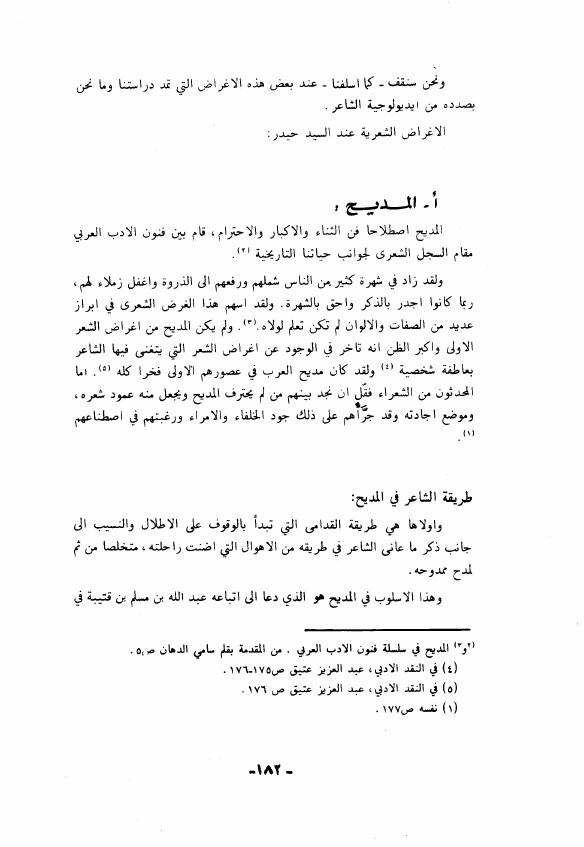 ونحن سنقف ـ كما اسلفنا ـ عند بعض هذه الاغراض التي تمد دراستنا وما نحن
بصدده من ايديولوجية الشاعر .
الاغراض الشعرية عند السيد حيدر:
أ ـ المديح :
المديح اصطلاحا فن الثناء والاكبار والاحترام، قام بين فنون الادب العربي
مقام السجل الشعرى لجوانب حياتنا التاريخية (٢).
ولقد زاد في شهرة كثير من الناس شملهم ورفعهم الى الذروة واغفل زملاء لهم،
ربما كانوا اجدر بالذكر واحق بالشهرة. ولقد اسهم هذا الغرض الشعرى في ابراز
عديد من الصفات والالوان لم تكن تعلم لولاه.(٣). ولم يكن المديح من اغراض الشعر
الاولى واكبر الظن انه تاخر في الوجود عن اغراض الشعر التي يتغنى فيها الشاعر
بعاطفة شخصية (٤) ولقد كان مديح العرب في عصورهم الاولى فخرا كله (٥). اما
المحدثون من الشعراء فقلّ ان نجد بينهم من لم يحترف المديح ويجعل منه عمود شعره،
وموضع اجادته وقد جرّأهم على ذلك جود الخلفاء والامراء ورغبتهم في اصطناعهم
(١).
طريقة الشاعر في المديح:
واولاها هي طريقة القدامى التي تبدأ بالوقوف على الاطلال والنسيب الى
جانب ذكر ما عانى الشاعر في طريقه من الاهوال التي اضنت راحلته، متخلصا من ثم
لمدح ممدوحه.
وهذا الاسلوب في المديح هو الذي دعا الى اتباعه عبد الله بن مسلم بن قتيبة في
(٢و٣) المديح في سلسلة فنون الادب العربي . من المقدمة بقلم سامي الدهان ص٥.
(٤) في النقد الادبي، عبد العزيز عتيق ص١٧٥-١٧٦ .
(٥) في النقد الادبي، عبد العزيز عتيق ص ١٧٦ .
(١) نفسه ص١٧٧ .
- ١٨٢ -